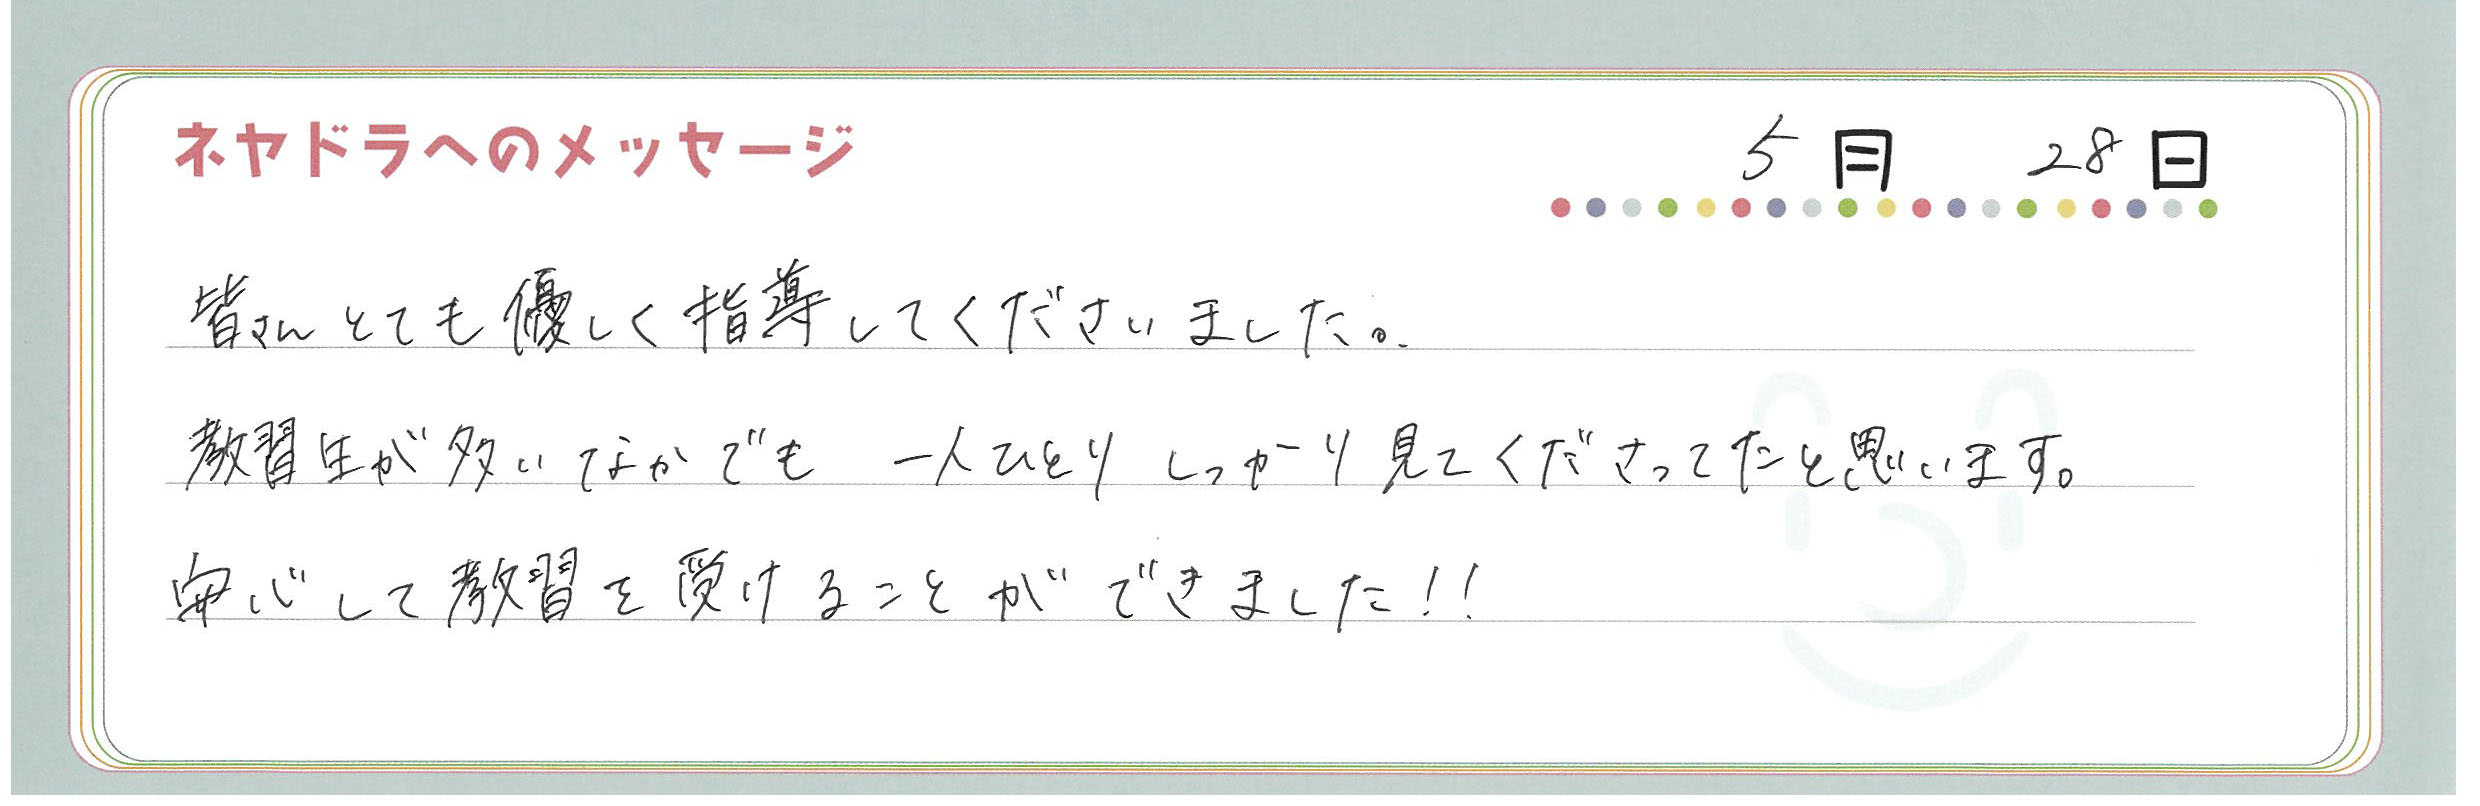 ネヤドラへのメッセージ
5月 28日
皆さんとても優しく指導してくださいました。
教習生が多いなかでも 一人ひとりしっかり見てくださってたと思います。
安心して教習を受けることができました!!